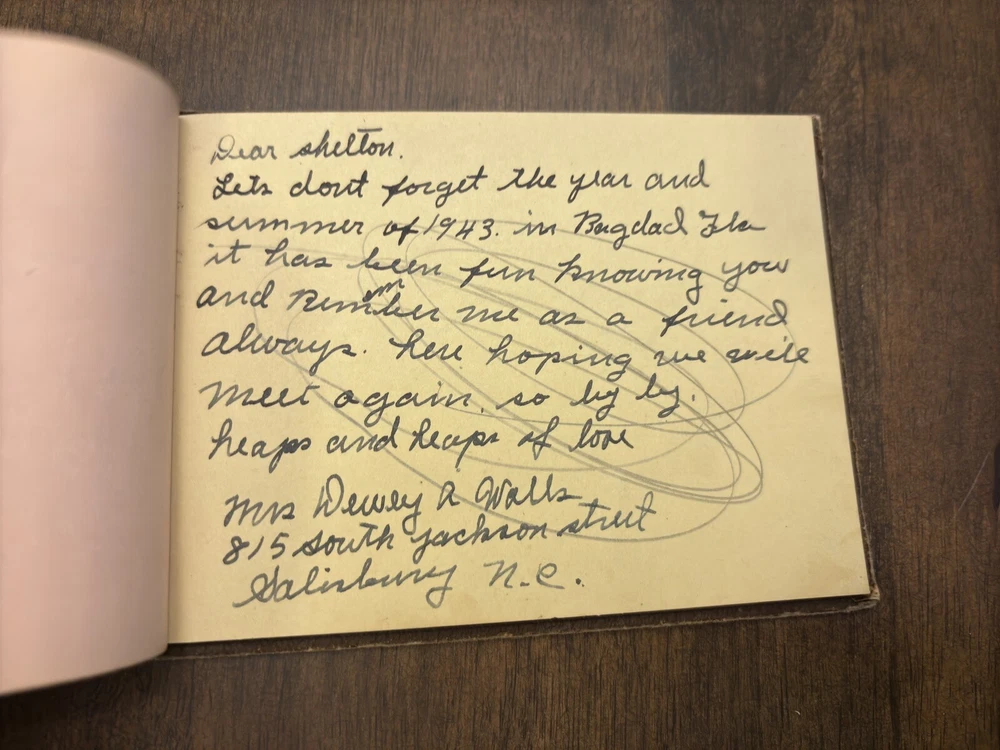 Dear shelton.
Lets dont forget the year and
summer of 1943. in Bagdad Fla
it has been fun knowing you
and Remember me as a friend
always. here hoping we will
meet again. so by by.
heaps and heaps of love
Mrs Dewey A Walls
815 south jackson street
Salisbury N.C.